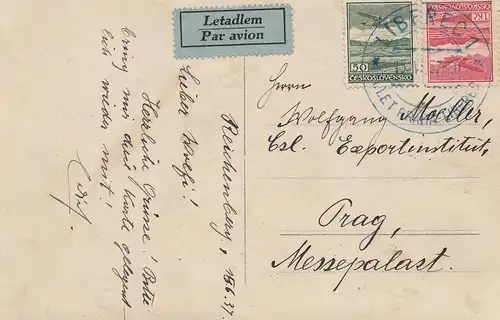 Letadlem
Par avion
50
ČESKOSLOVENSKO
1 Kč
ČESKOSLOVENSKO
LIBEREC 1
LET
Reichenberg, 15.6.37.
Lieber Woefi!
Herzliche Grüsse! Bitte
bring mir diese Karte gelegent-
lich wieder mit!
Herrn
Wolfgang Moeller,
Csl. Exportinstitut,
Prag,
Messepalast.